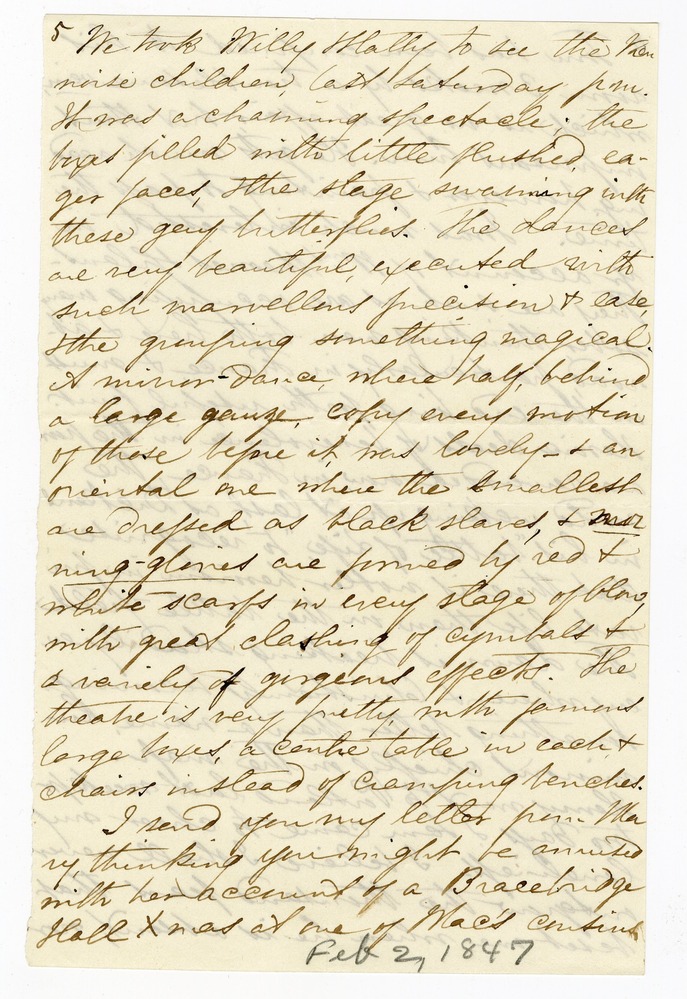 5 We took Willy & Hatty to see the Vien
noise children, last Saturday p.m.
It was a charming spectacle; the
boxes filled with little flushed, ea-
ger faces, & the stage swarming with
these gay butterflies. The dances
are very beautiful, executed with
such marvellous precision & ease,
& the grouping something magical.
A mirror-dance, where half, behind
a large gauze, copy every motion
of those before it, was lovely - & an
oriental one where the smallest
are dressed as black slaves, & mor
ning-glories are formed by red &
white scarfs in every stage of blow,
with great clashing of cymbals &
a variety of gorgeous effects. The
theatre is very pretty, with famous
large boxes, a centre table in each &
chairs instead of cramping benches.
I send you my letter from Ma
ry, thinking you might be amused
with her account of a Bracebridge
Hall Xmas at one of Mac's cousins
Feb 2, 1847